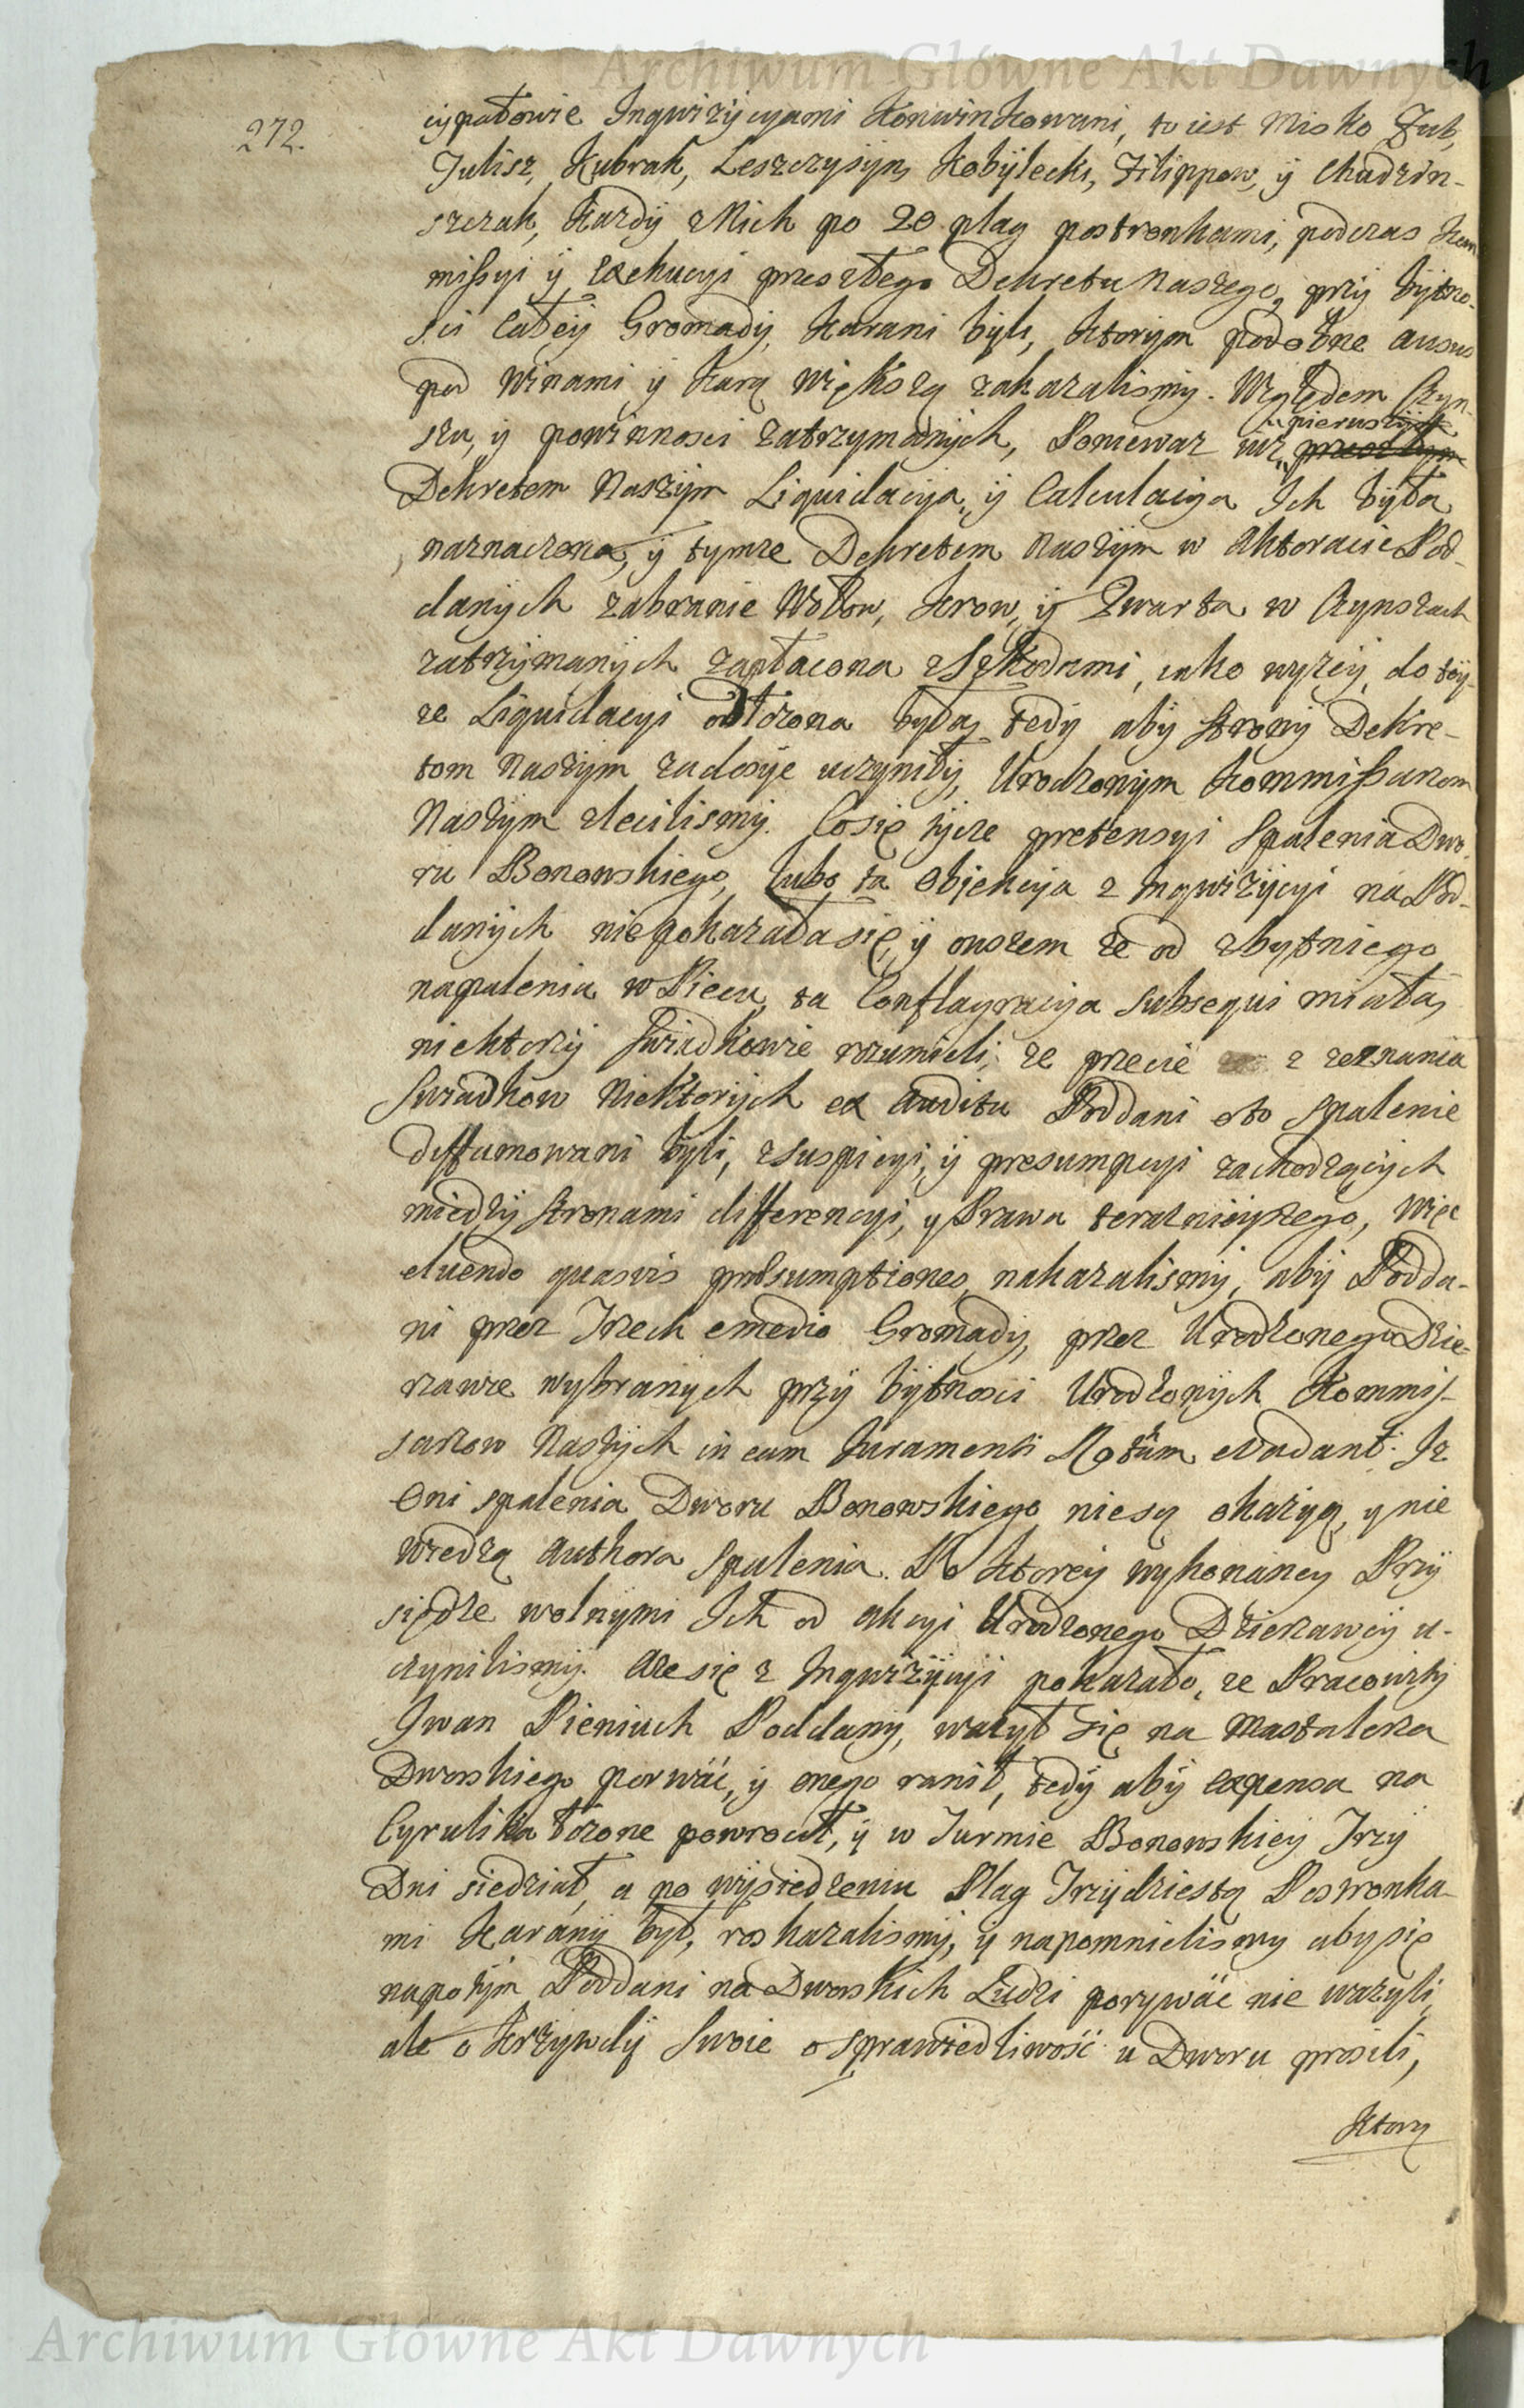 Archiwum Główne Akt Dawnych
272.
cypałowie Inqwizycyami Konwinkowani, to iest Misko Zub,
Julisz, Kubrak, Leszczyszyn, Kobylecki, Filippow, y Chudzin-
szczak, Kazdy z Nich po 20 plag postronkami, podczas Kom
missyi y Exekucyi przeszłego Dekretu Naszego, przy bytno-
sci Całey Gromady, Karani byli, Ktorym podobne ausus
pod winami y Karą większą zakazalismy. Względem Czyn-
szu, y powinnosci zatrzymanych, Poniewaz iuz pierwszym przeszłym
Dekretem Naszym Liquidacya, y Calculacya Ich była
naznaczona, y tymze Dekretem Naszym w Aktoracie Pod-
danych zabranie Wołow, Krow, y Zwarta w Czynszach
zatrzymanych zapłacona z Szkodami, iako wyzey, do tey-
ze Liquidacyi odłozona była, tedy aby Strony Dekre-
tom Naszym zadosyc uczyniły, Urodzonym Kommissarzom
Naszym zlecilismy. Co się tycze pretensyi Spalenia Dwo-
ru Bonowskiego, lubo ta Objekcya z Inqwizycyi na Pod-
danych niepokazała się, y owszem ze od zbytniego
napalenia w Piecu, ta Conflagracya subsequi miała,
niektorzy Swiadkowie rozumieli, ze przecie z zeznania
Swiadkow Niektorych ex Auditu Poddani oto spalenie
diffamowani byli, z suspicyi, y presumpcyi zachodzących
między Stronami differencyi, y Prawa teraznieyszego, Więc
eluendo quasvis præsumptiones, nakazalismy, aby Podda-
ni przez Trzech e medio Gromady, przez Urodzonego Dzie-
rzawce wybranych przy bytnosci Urodzonych Kommis-
sarzow Naszych in eam Juramenti Rotam evadant. Iz
Oni spalenia Dworu Bonowskiego niesą okazyą, y nie
wiedzą Authora Spalenia. Po Ktorey wykonaney Przy
siędze wolnymi Ich od Akcyi Urodzonego Dzierzawcy u-
czynilismy. Aze się z Inqwizycyi pokazało, ze Pracowity
Iwan Pieniuch Poddany, wazył się na Masztalerza
Dworskiego porwać, y onego ranił, tedy aby expensa na
Cyrulika łozone powrocił, y w Turmie Bonowskiey Trzy
Dni siedział, a po wysiedzeniu Plag Trzydziestą Postronka-
mi Karany był, roskazalismy, y napomnielismy aby się
napotym Poddani na Dworskich Ludzi porywać nie wazyli,
ale o Krzywdy Swoie o sprawiedliwość u Dworu prosili,
Ktory
Archiwum Główne Akt Dawnych